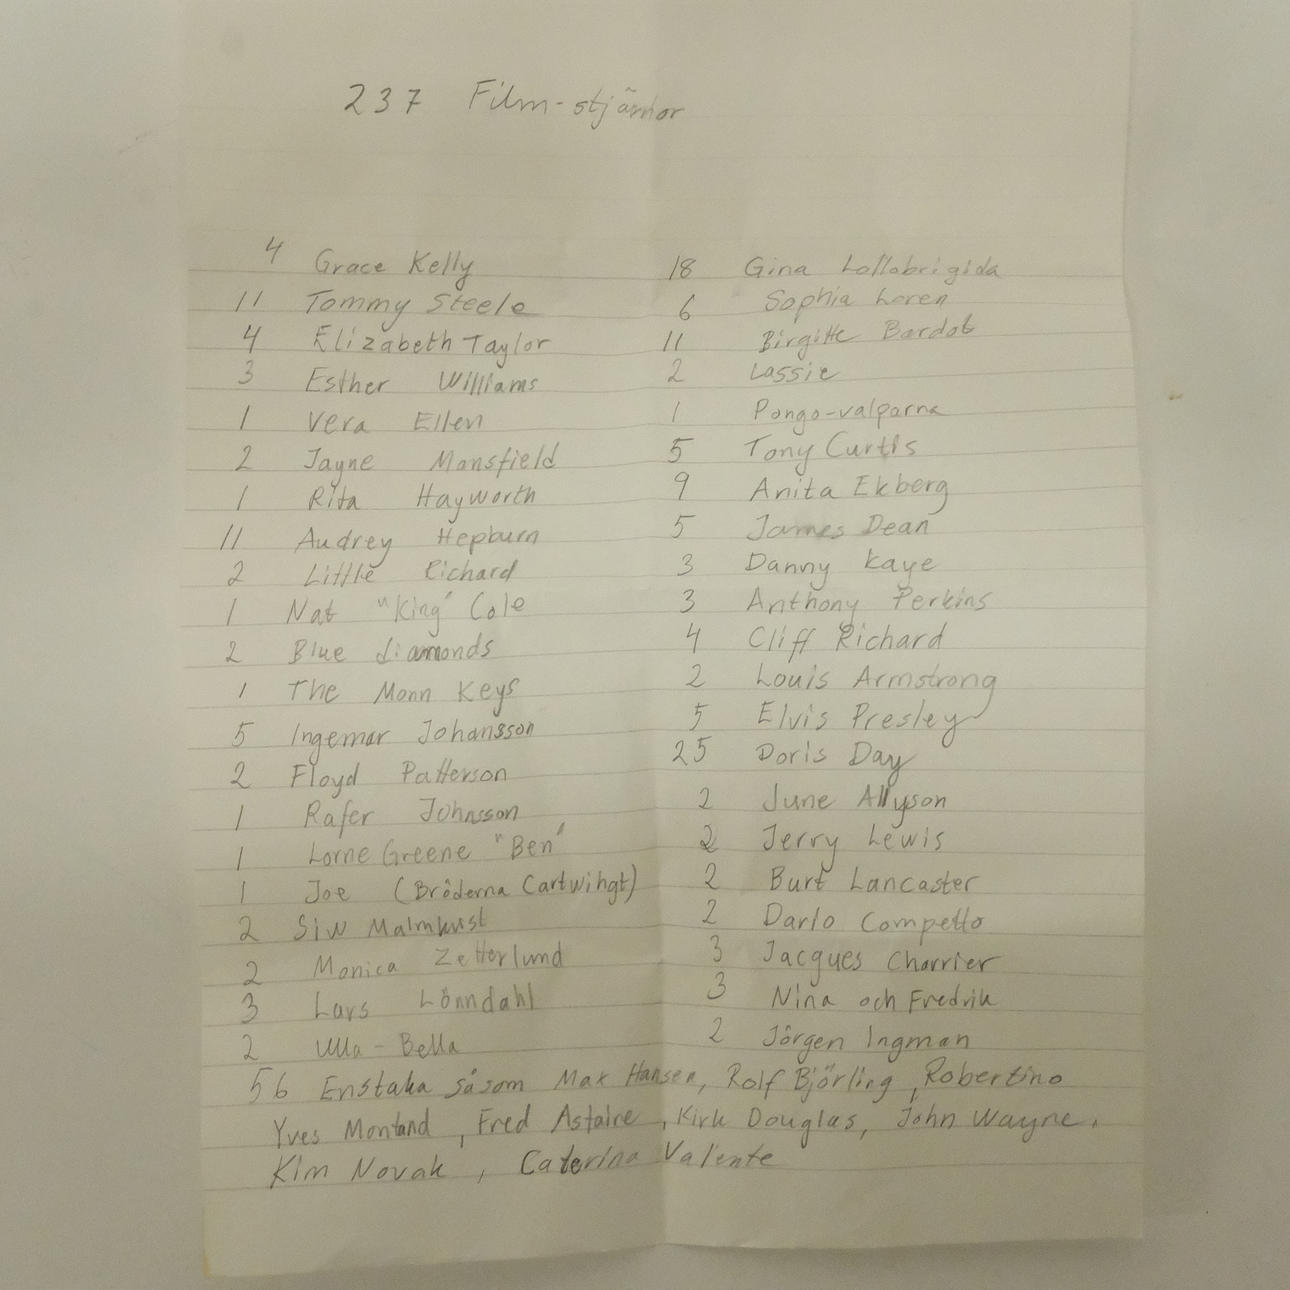 237 Film-stjärnor
4 Grace Kelly
11 Tommy Steele
4 Elizabeth Taylor
3 Esther Williams
1 Vera Ellen
2 Jayne Mansfield
1 Rita Hayworth
11 Audrey Hepburn
2 Little Richard
1 Nat "King" Cole
2 Blue diamonds
1 The Monn Keys
5 Ingemar Johansson
2 Floyd Patterson
1 Rafer Johnsson
1 Lorne Greene "Ben"
1 Joe (Bröderna Cartwihgt)
2 Siw Malmkvist
2 Monica Zetterlund
3 Lars Lönndahl
2 Ulla-Bella
18 Gina Lollobrigida
6 Sophia Loren
11 Birgitte Bardot
2 Lassie
1 Pongo-valparna
5 Tony Curtis
9 Anita Ekberg
5 James Dean
3 Danny Kaye
3 Anthony Perkins
4 Cliff Richard
2 Louis Armstrong
5 Elvis Presley
25 Doris Day
2 June Allyson
2 Jerry Lewis
2 Burt Lancaster
2 Dario Campetto
3 Jacques Charrier
3 Nina och Fredrik
2 Jörgen Ingman
56 Enstaka såsom Max Hansen, Rolf Björling, Robertino
Yves Montand, Fred Astaire, Kirk Douglas, John Wayne,
Kim Novak, Caterina Valente